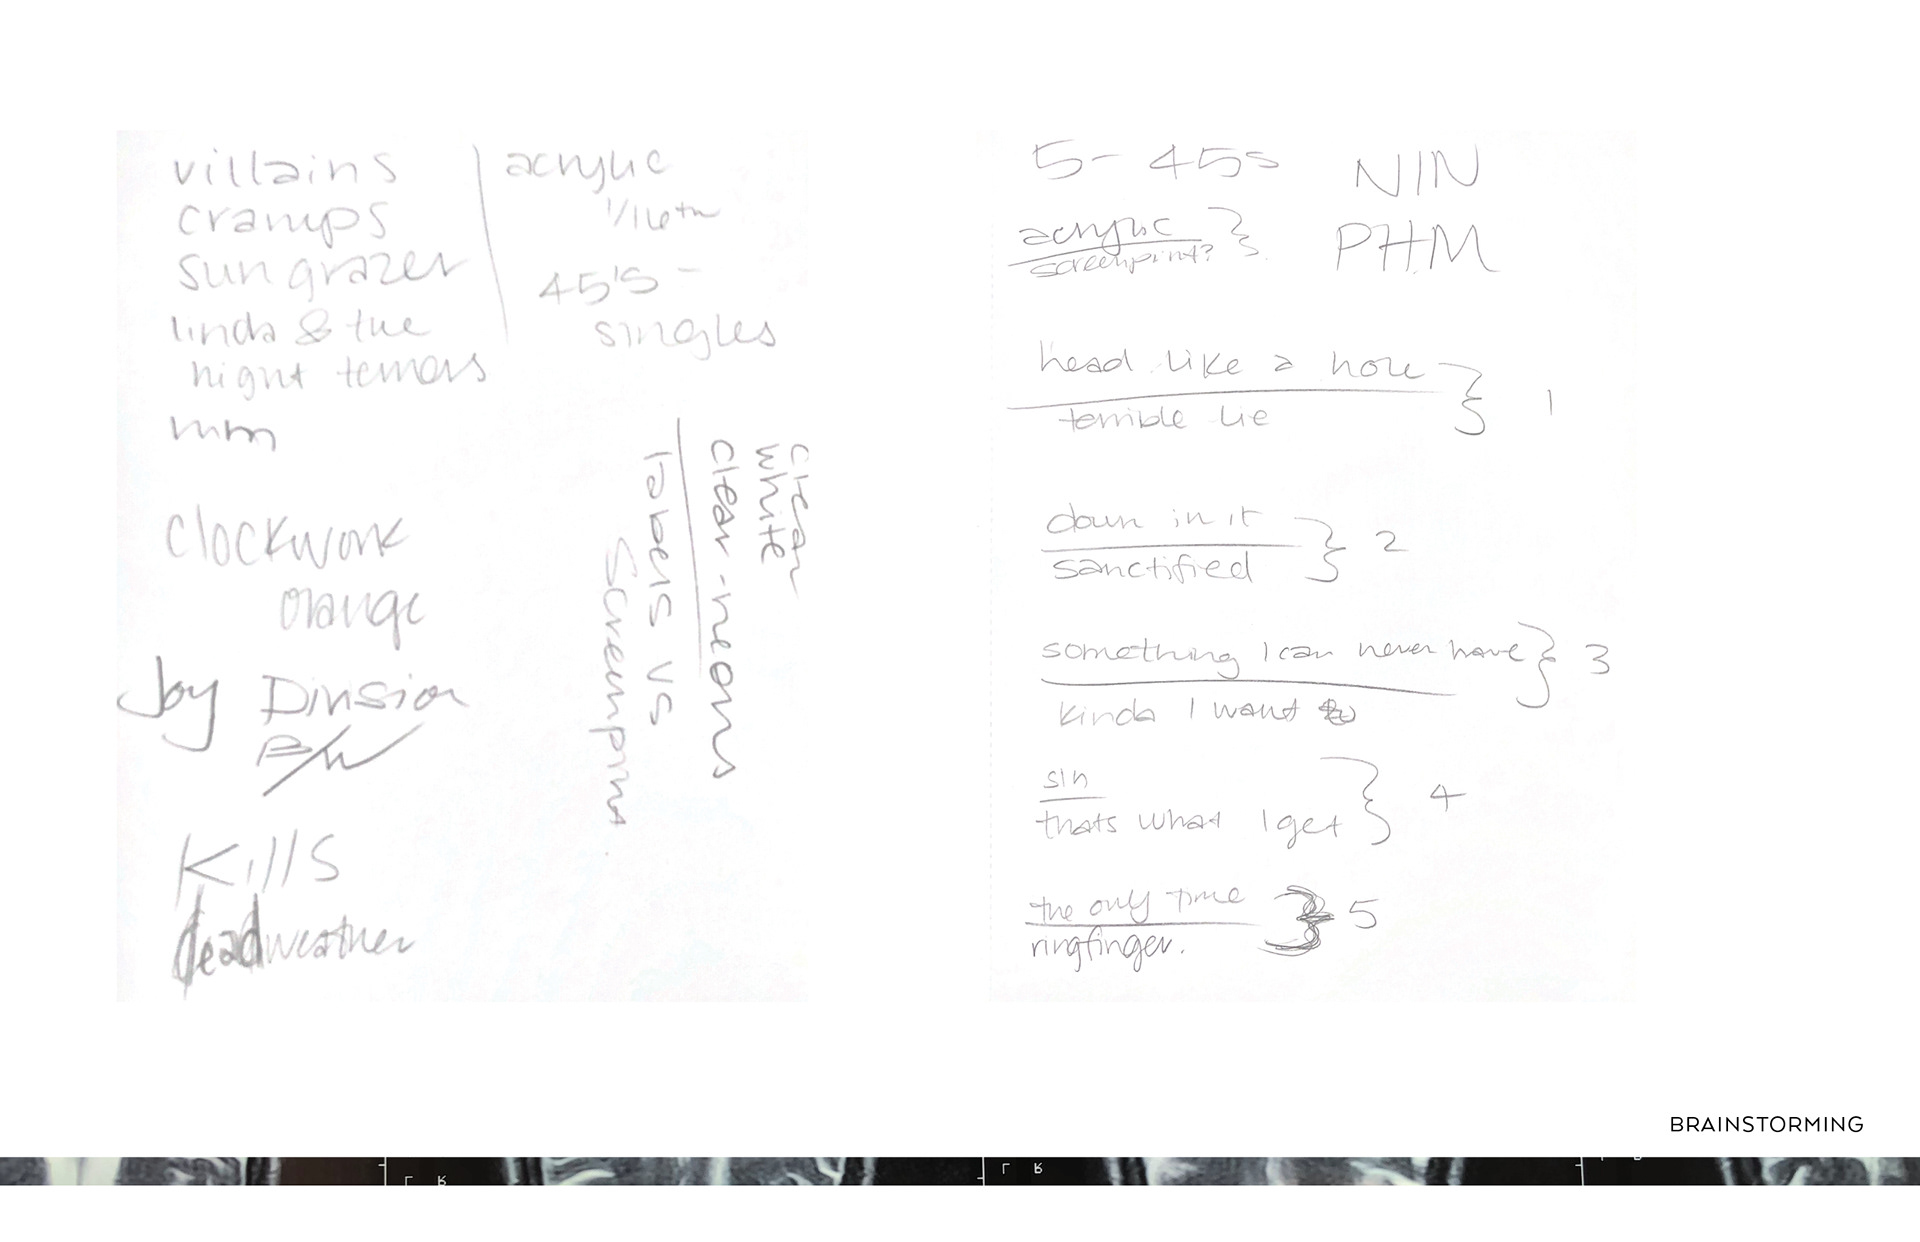 villains
cramps
sungrazer
linda & the
night terrors
mm
acrylic
1/16th
45's -
singles
clear
white
clear - neons
labels vs
screenprint
clockwork
orange
Joy Division
B/W
Kills
deadweather
5 - 45s
NIN
acrylic
screenprint?
PHM
head like a hole
terrible lie
1
down in it
sanctified
2
something I can never have
kinda I want to
3
sin
thats what I get
4
the only time
ringfinger.
5
BRAINSTORMING
L R
L R